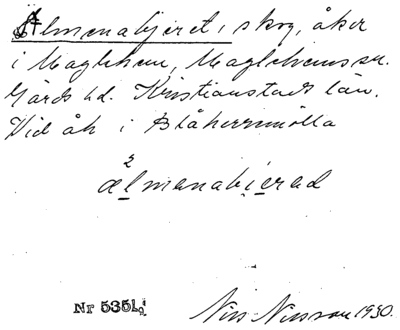 Almenabjeret, skog, åker
i Maglehem, Maglehems sn.
Gärds hd. Kristianstads län.
Vid åk i Blåherremölla
2
ælmenabierad
Nr 5351
Nils Nilsson 1930.